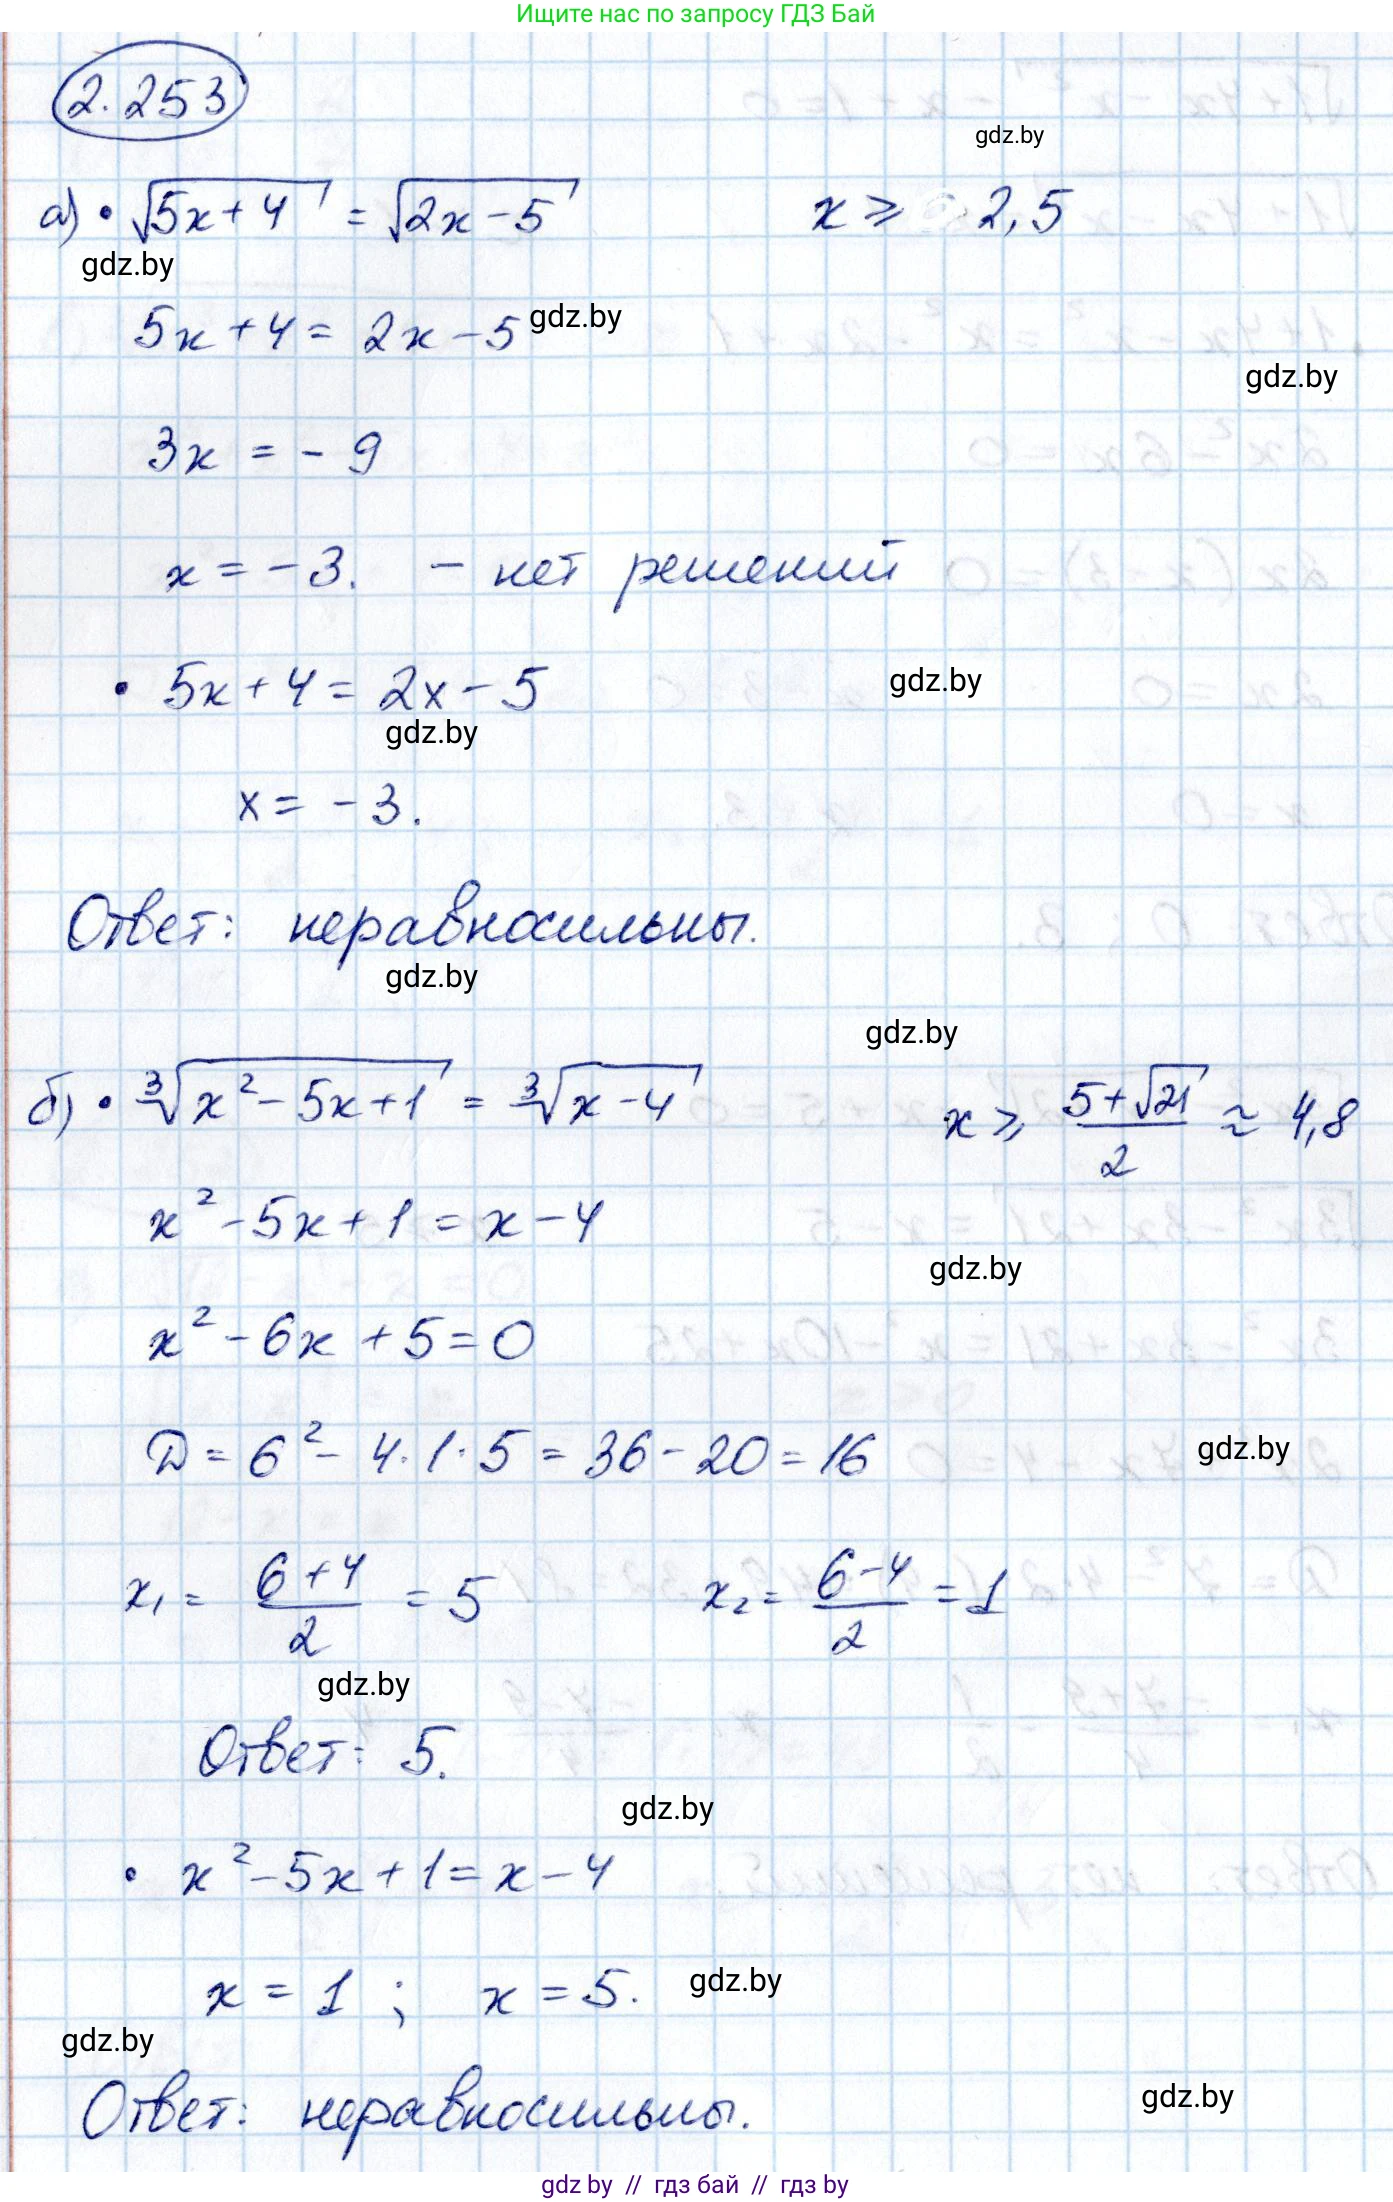 Ищите нас по запросу ГДЗ Бай
2.253
gdz.by
а) • √(5x+4) = √(2x-5) x ⩾ 2,5
gdz.by
5x+4 = 2x-5 gdz.by
gdz.by
3x = -9
x = -3. - нет решений
• 5x+4 = 2x-5 gdz.by
gdz.by
x = -3.
Ответ: неравносильны.
gdz.by
gdz.by
б) • ∛(x²-5x+1) = ∛(x-4) x ⩾ (5+√21)/2 ≈ 4,8
x²-5x+1 = x-4
gdz.by
x²-6x+5=0
D = 6²-4·1·5 = 36-20 = 16 gdz.by
x₁ = (6+4)/2 = 5 x₂ = (6-4)/2 = 1
gdz.by
Ответ: 5.
gdz.by
• x²-5x+1 = x-4
x = 1 ; x = 5. gdz.by
gdz.by
Ответ: неравносильны. gdz.by
gdz by // гдз бай // гдз by